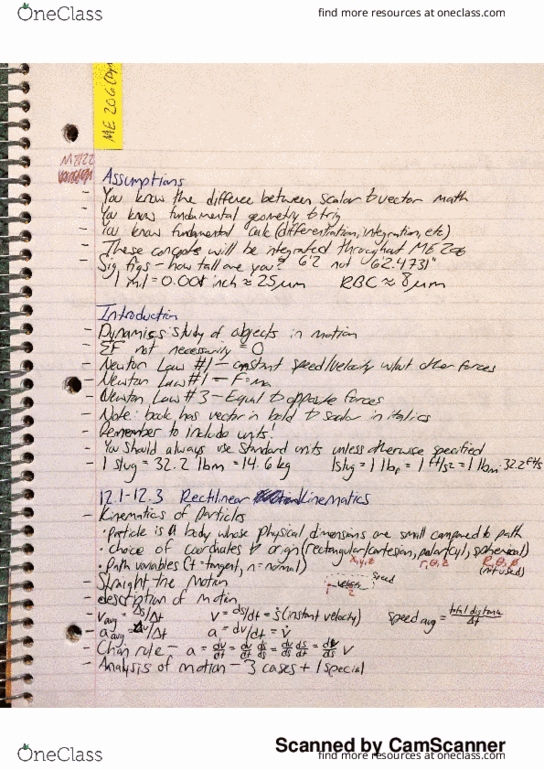 OneClass
find more resources at oneclass.com
ME 206
Assumptions
- You know the diffence between scalar & vector math
- You know fundamental geometry & trig
- You know fundamental calc (differentiation, integration, etc)
- These concepts will be integrated throughout ME 206
- Sig figs - how tall are you? 6'2 not 6'2.4731"
1 mil = 0.001 inch ≈ 25 μm RBC ≈ 8 μm
Introduction
- Dynamics: study of objects in motion
- ΣF not necessarily = 0
- Newton Law #1 - constant speed/velocity w/out other forces
- Newton Law #1 - F=ma
- Newton Law #3 - Equal & opposite forces
- Note: book has vector in bold & scalar in italics
- Remember to include units!
- You should always use standard units unless otherwise specified
- 1 slug = 32.2 lbm = 14.6 kg
12.1-12.3 Rectilinear Kinematics
- Kinematics of Particles
• Particle is a body whose physical dimensions are small compared to path
• Choice of coordinates & origin (rectangular/cartesian, polar/cyl, spherical)
• Path variables (t = tangent, n = normal) x,y,z r,θ,z R,θ,φ
(not used)
- Straight line motion speed
- description of motion
- v avg = Δs/Δt v = ds/dt = ṡ (instant velocity) speed avg = total distance/Δt
- a avg = Δv/Δt a = dv/dt = v̇
- Chain rule - a = dv/dt = dv/dt ds/ds = dv/ds ds/dt = dv/ds v
- Analysis of motion - 3 cases + 1 special
Scanned by CamScanner
OneClass
find more resources at oneclass.com